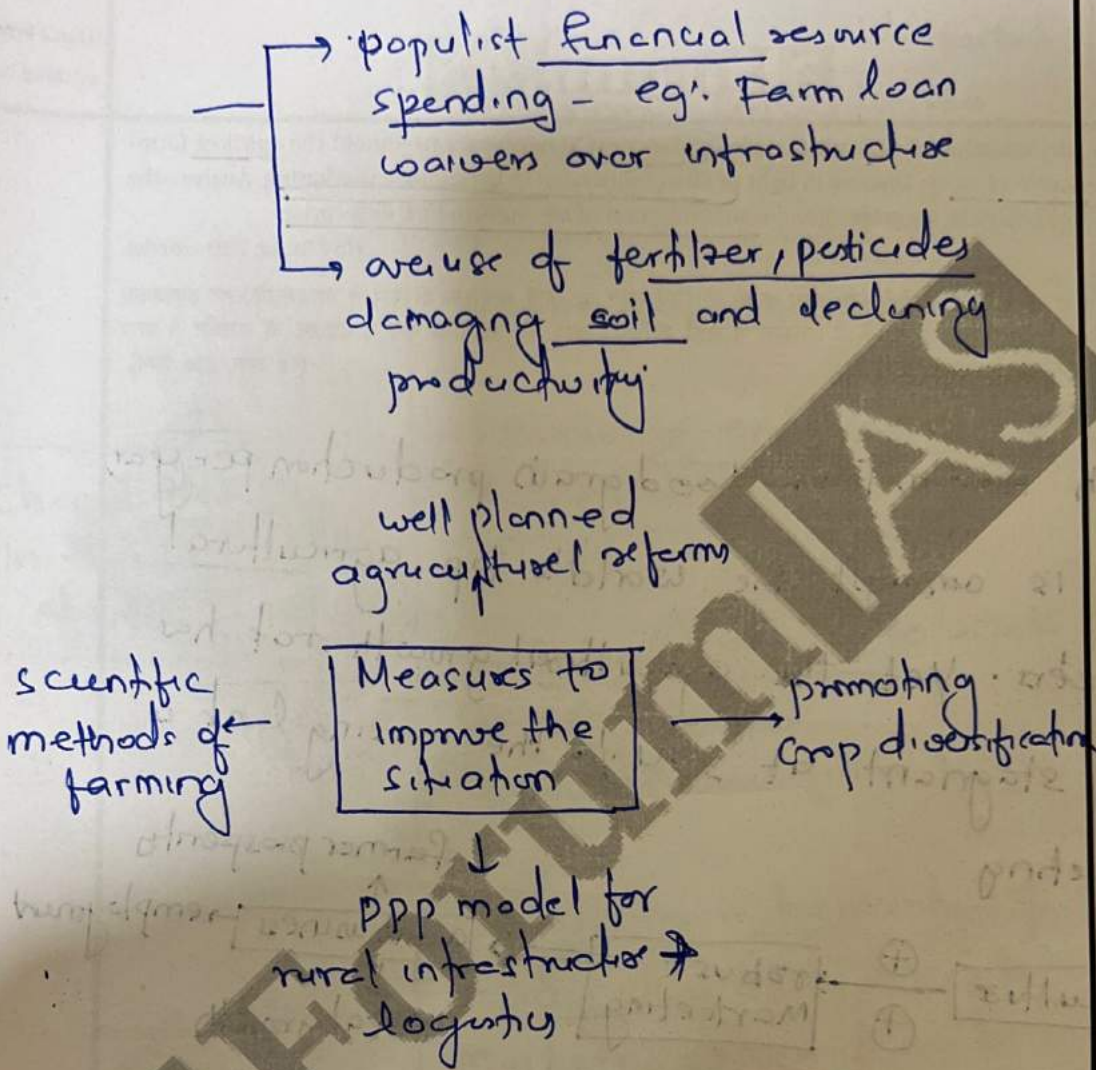 populist financial resource
spending - eg: Farm loan
waivers over infrastructure
overuse of fertilzer, pesticides
damaging soil and declining
productivity
well planned
agricultural reforms
scientific
methods of
farming
Measures to
improve the
situation
promoting
crop diversification
PPP model for
rural infrastructure &
logistics
ForumIAS